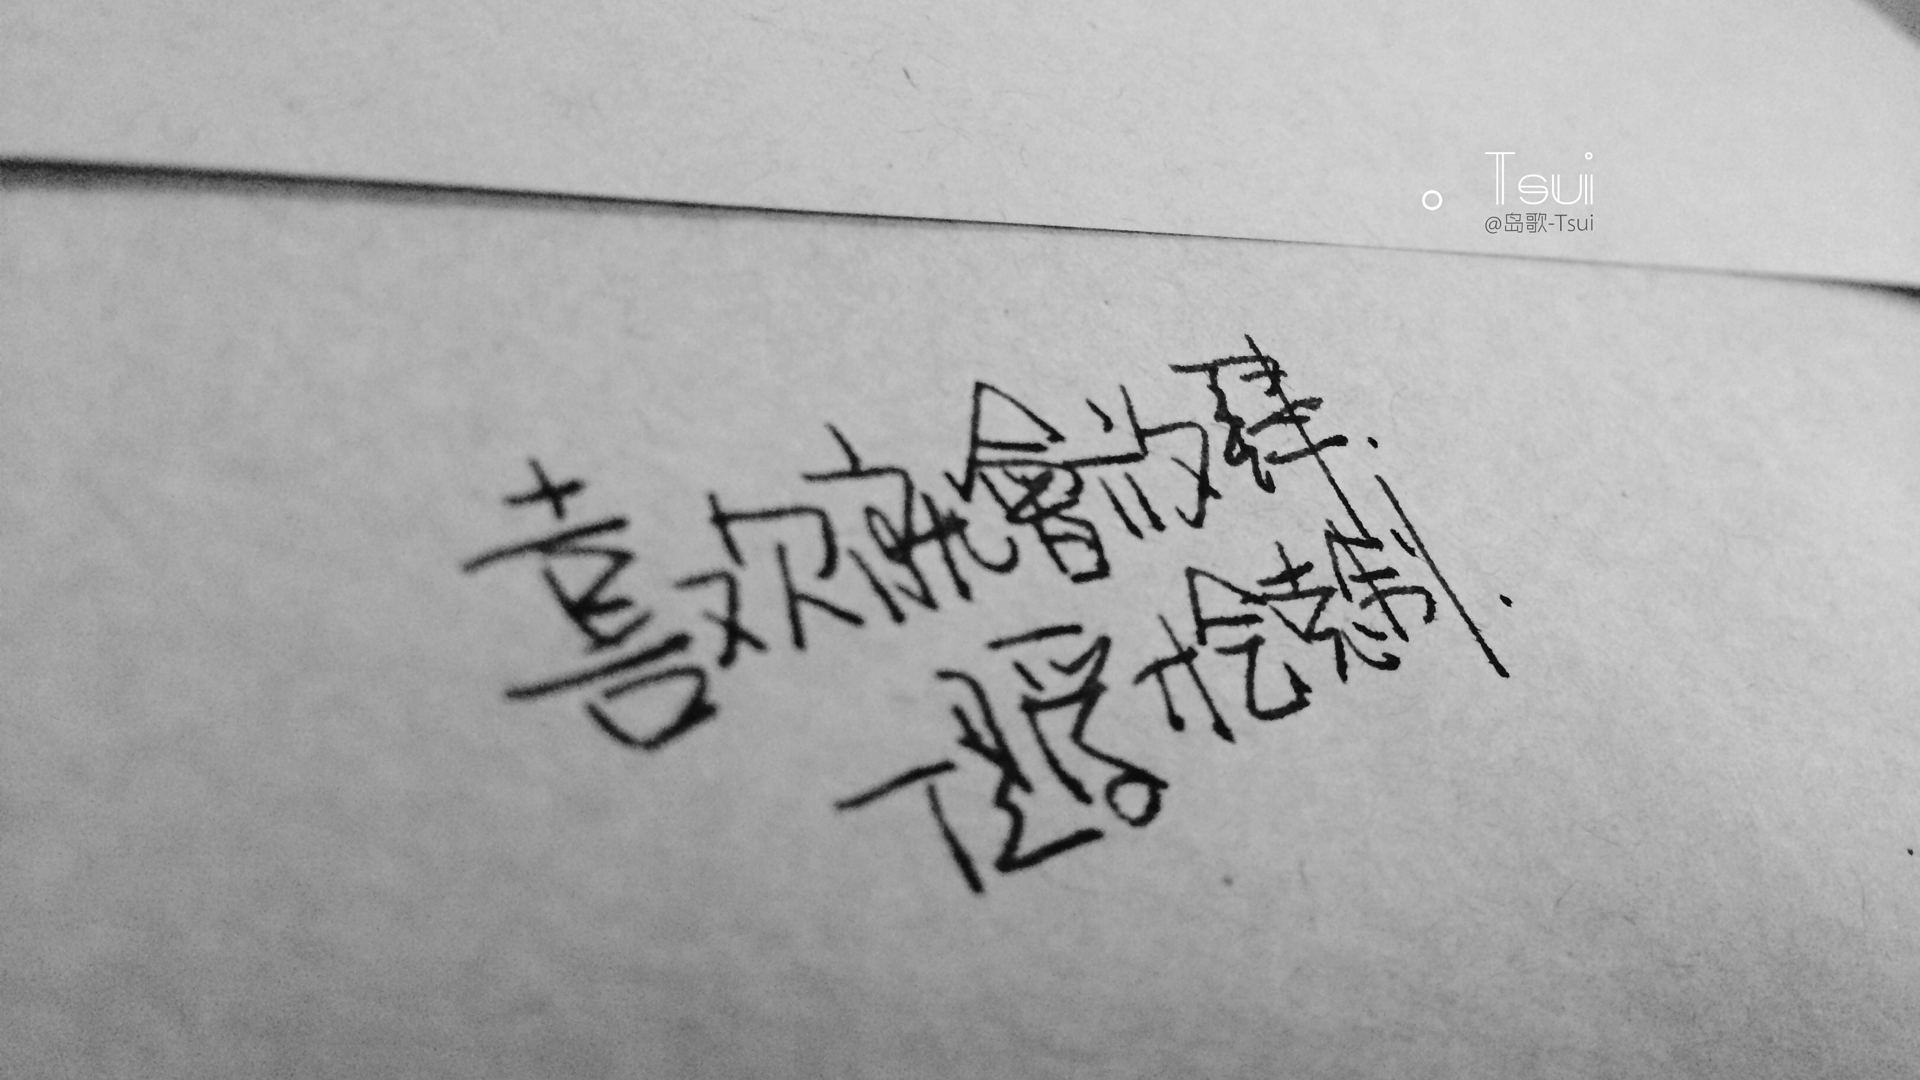 Tsui
@岛歌-Tsui
喜欢就會放肆.
但爱才会克制.